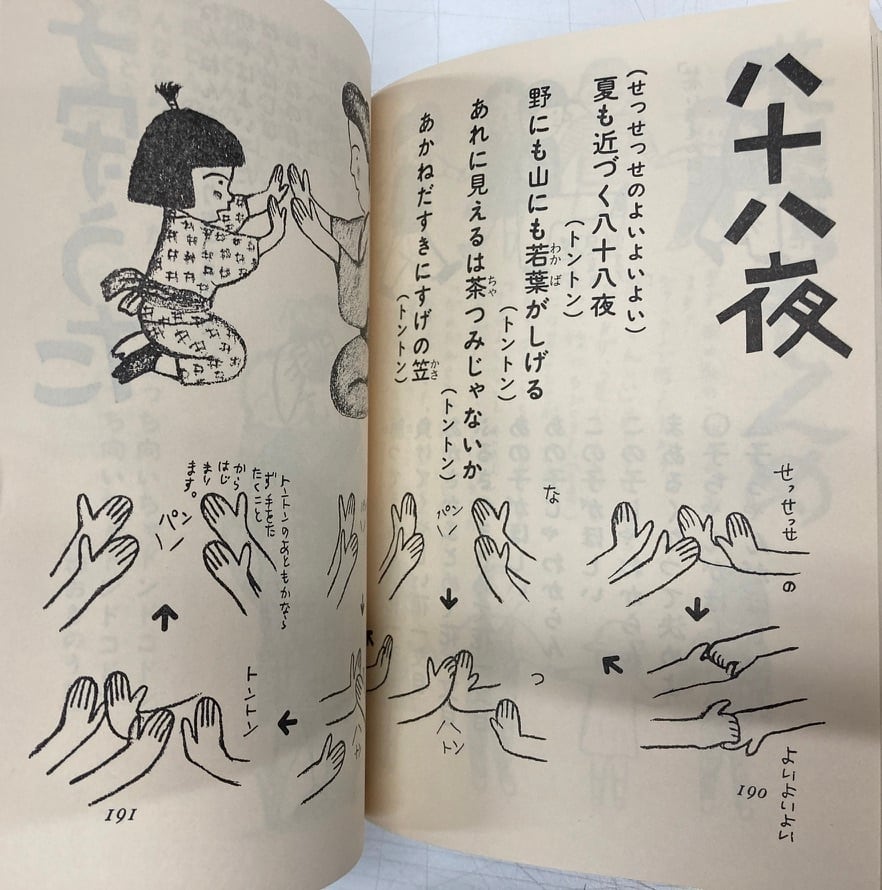 八十八夜
(せっせっせのよいよいよい)
夏も近づく八十八夜
(トントン)
野にも山にも若葉がしげる
(トントン)
あれに見えるは茶つみじゃないか
(トントン)
あかねだすきにすげの笠
(トントン)
せっせっせ
の
よいよいよい
な
パン
つ
トン
トントン
パン
トントンのあともかなら
ず手をた
たくこと
から
はじ
まり
ます。
190
191